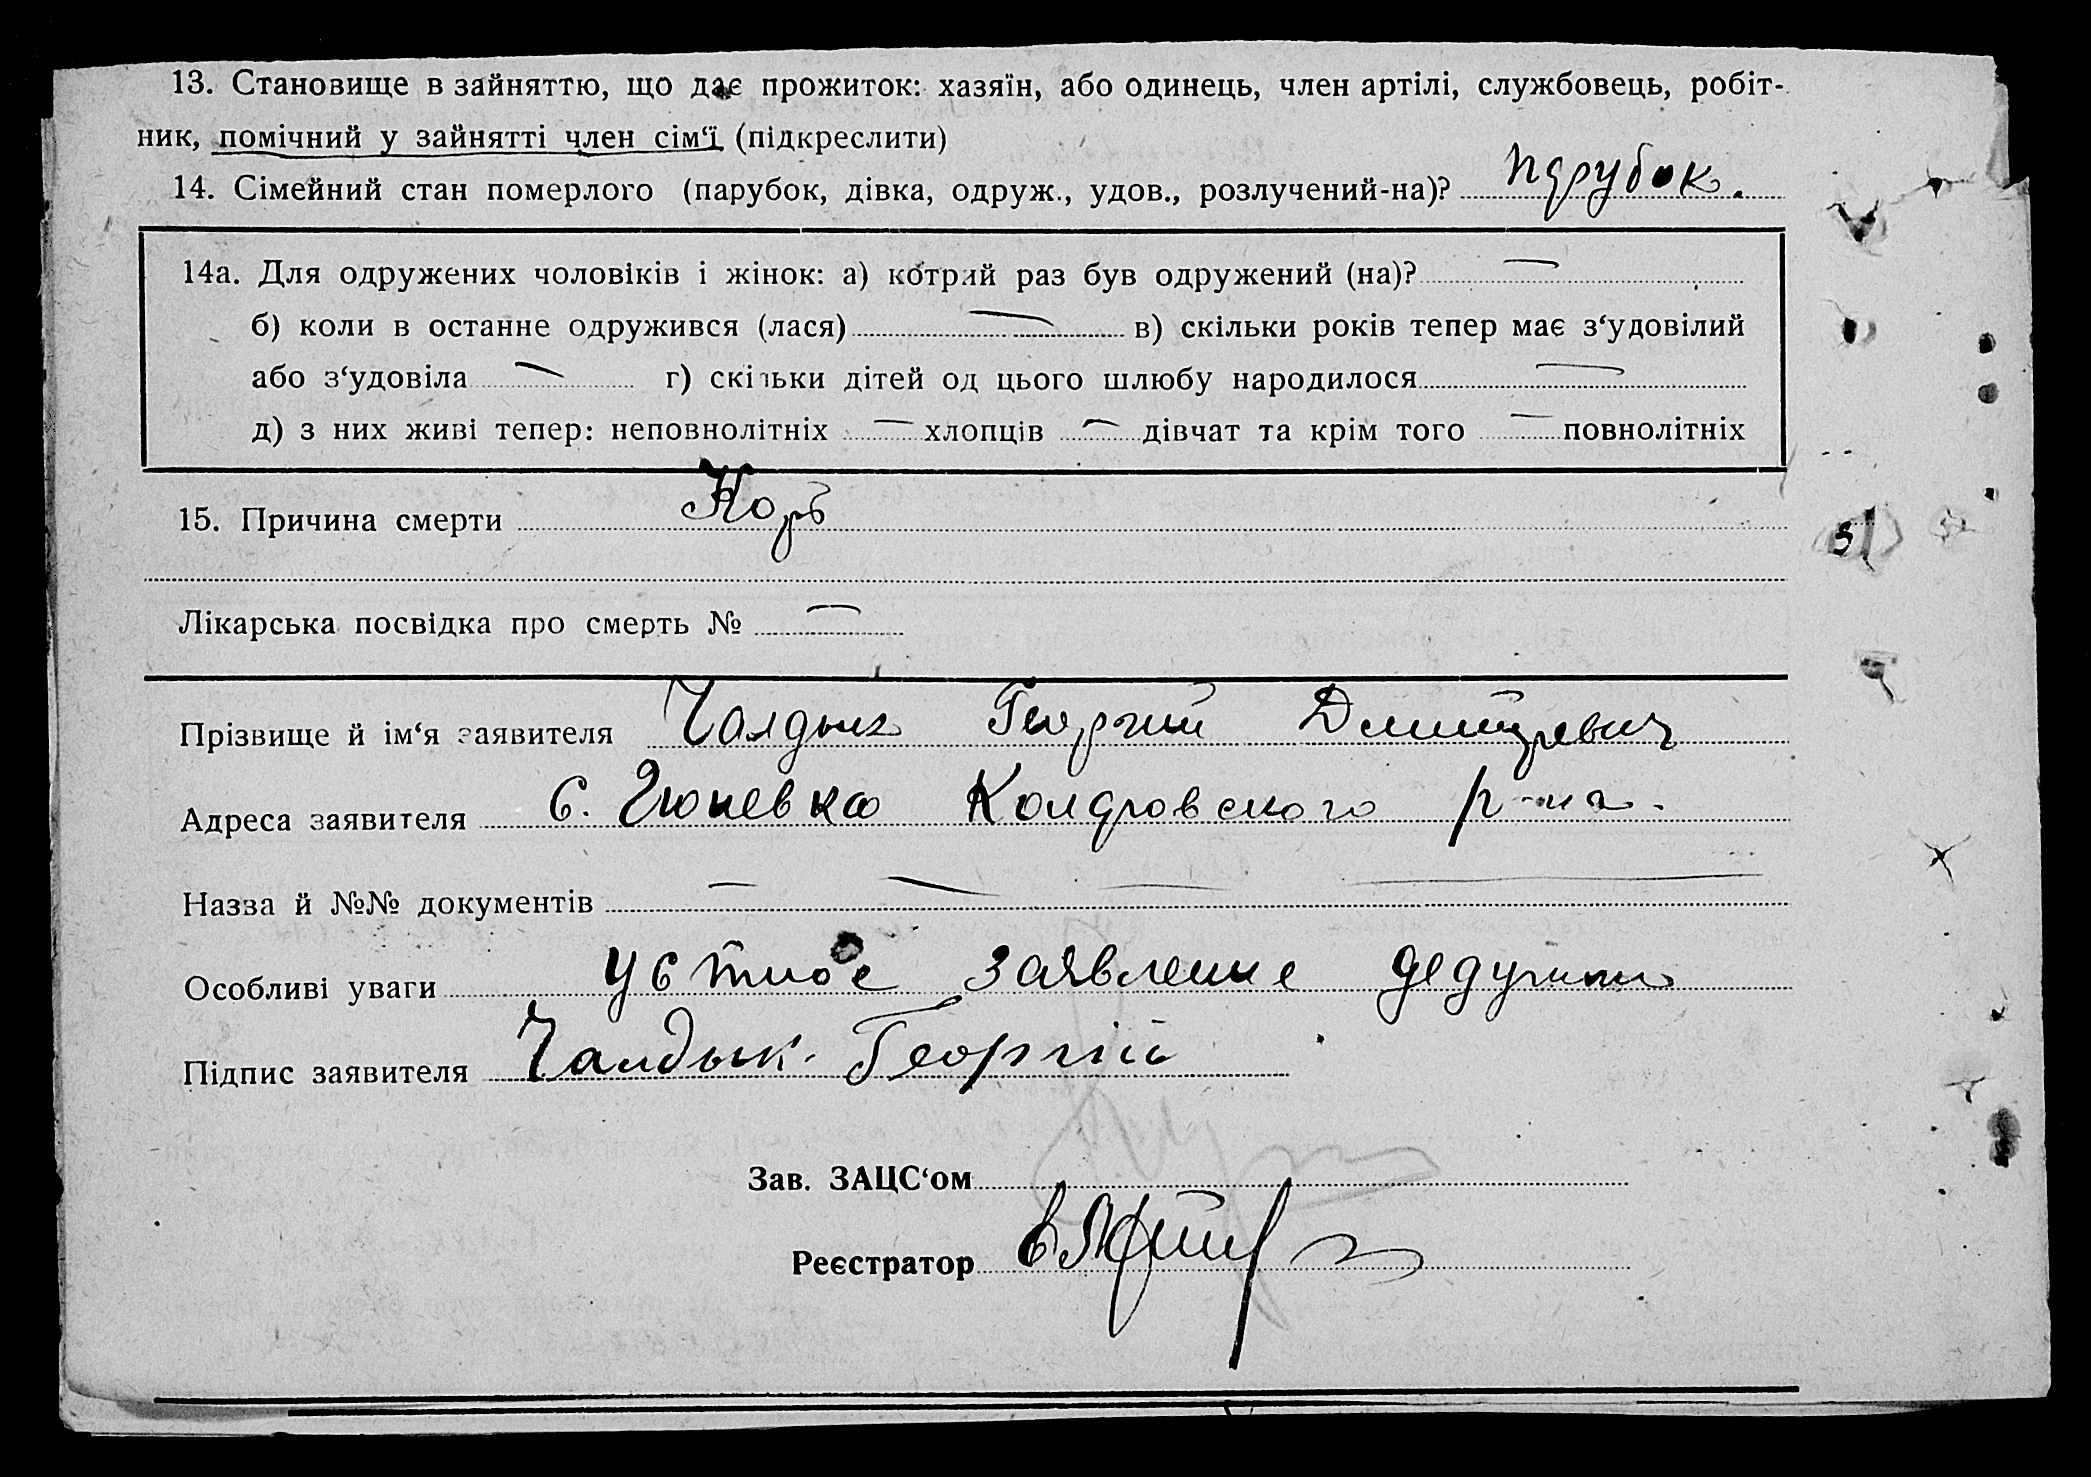 13. Становище в зайняттю, що дає прожиток: хазяїн, або одинець, член артілі, службовець, робіт-
ник, помічний у зайнятті член сім‘ї (підкреслити)
14. Сімейний стан померлого (парубок, дівка, одруж., удов., розлучений-на)? парубок.
14а. Для одружених чоловіків і жінок: а) котрий раз був одружений (на)? —
б) коли в останне одружився (лася) — в) скільки років тепер має з‘удовілий
або з‘удовіла — г) скільки дітей од цього шлюбу народилося —
д) з них живі тепер: неповнолітніх — хлопців — дівчат та крім того — повнолітніх
15. Причина смерти Корь
Лікарська посвідка про смерть № —
Прізвище й ім‘я заявителя Чалдык Георгий Дмитревич
Адреса заявителя С. Гюневка Колдровского р-на.
Назва й №№ документів — — — —
Особливі уваги Устное заявление дедушки
Підпис заявителя Чалдык Георгій
Зав. ЗАЦС‘ом
Реєстратор